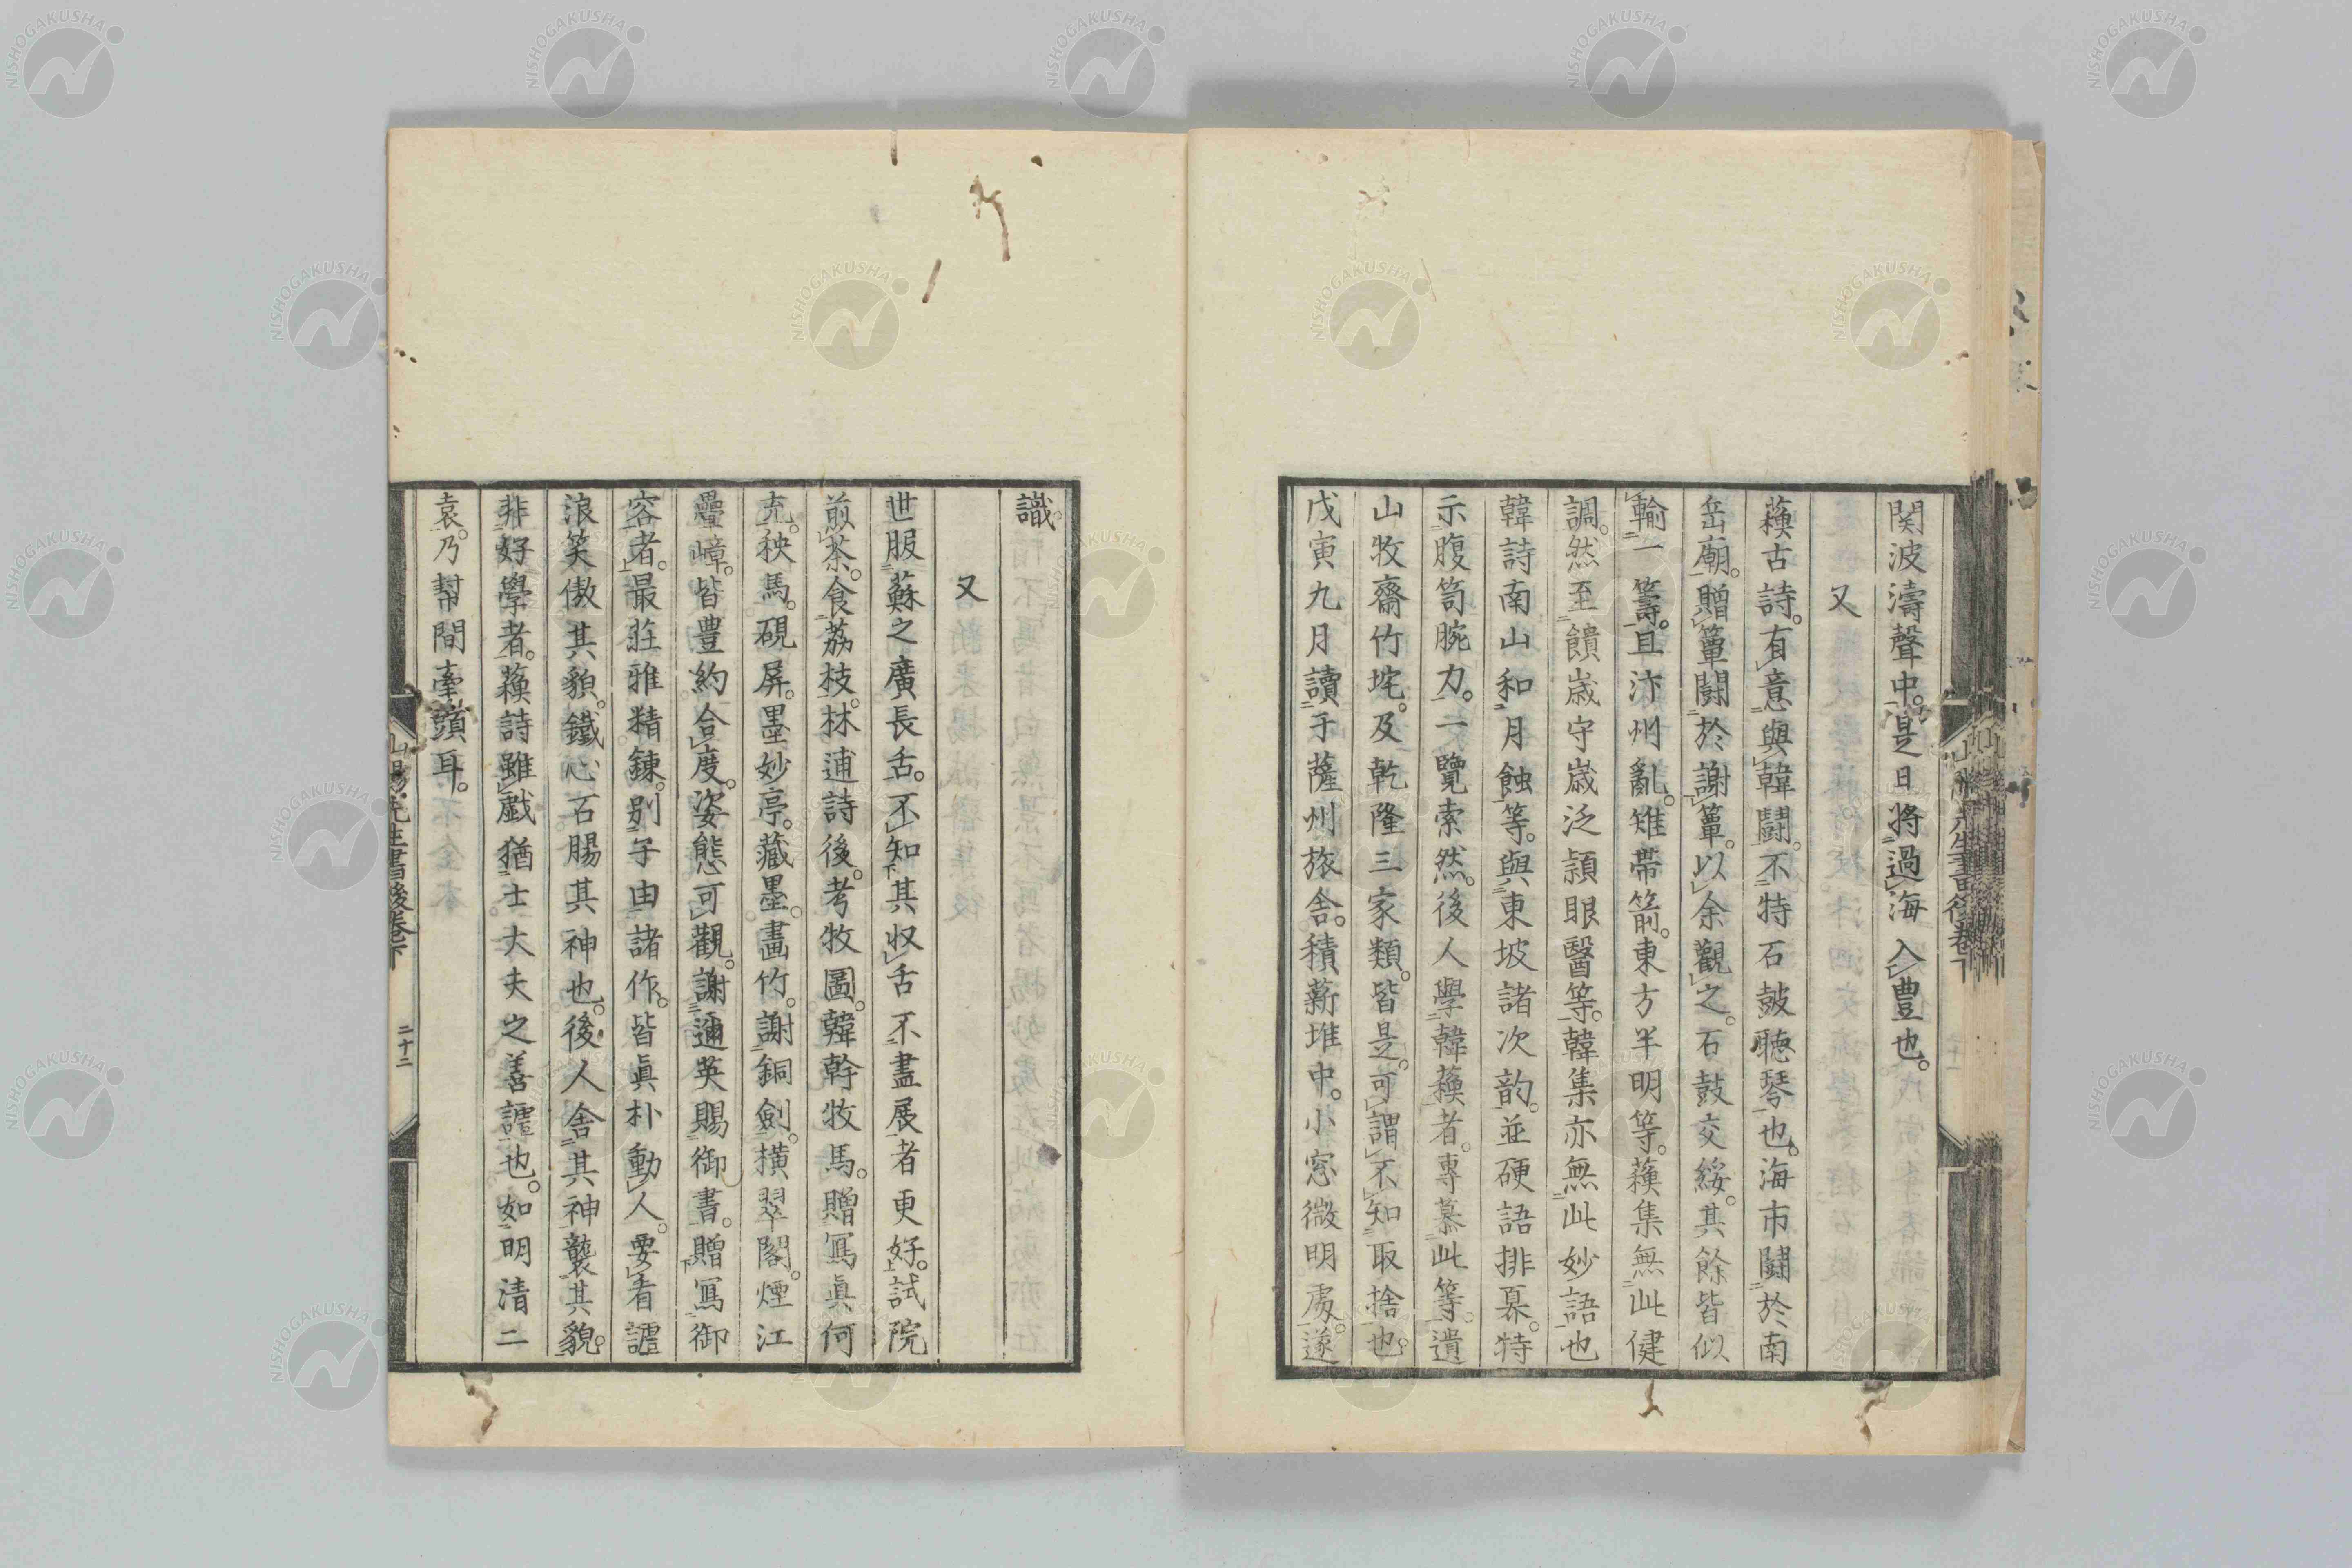 関波濤聲中。是日將過海入豊也。
又
蘓古詩。有意與韓鬪。不特石皷聴琴也。海市鬪於南
岳廟。贈簟鬪於謝簟。以余觀之。石鼓交綏。其餘皆似
輸一籌。且汴州亂。雉帶箭。東方半明等。蘓集無此健
調。然至饋歳守歳泛潁眼醫等。韓集亦無此妙語也
韓詩南山和月蝕等。與東坡諸次韵。並硬語排奡。特
示腹笥腕力。一覽索然。後人學韓蘓者。專慕此等。遺
山牧齋竹垞。及乾隆三家類。皆是。可謂不知取捨也。
戊寅九月讀于薩州旅舎。積薪堆中。小窓微明處。遂
識。
又
世服蘇之廣長舌。不知其収舌不盡展者更好。試院
煎茶。食荔枝。林逋詩後。考牧圖。韓幹牧馬。贈冩眞何
充。秧馬。硯屏。墨妙亭。藏墨。畫竹。謝銅劍。横翠閣。煙江
疊嶂。皆豊約合度。姿態可觀。謝邇英賜御書。贈冩御
容者。最莊雅精錬。别子由諸作。皆眞朴動人。要者謔
浪笑傲其貌。鐵心石腸其神也。後人舎其神襲其貌。
非好學者。蘓詩雖戯猶士大夫之善謔也。如明清二
袁。乃幇間牽頭耳。
山陽先生書後卷下
二十二
NISHOGAKUSHA